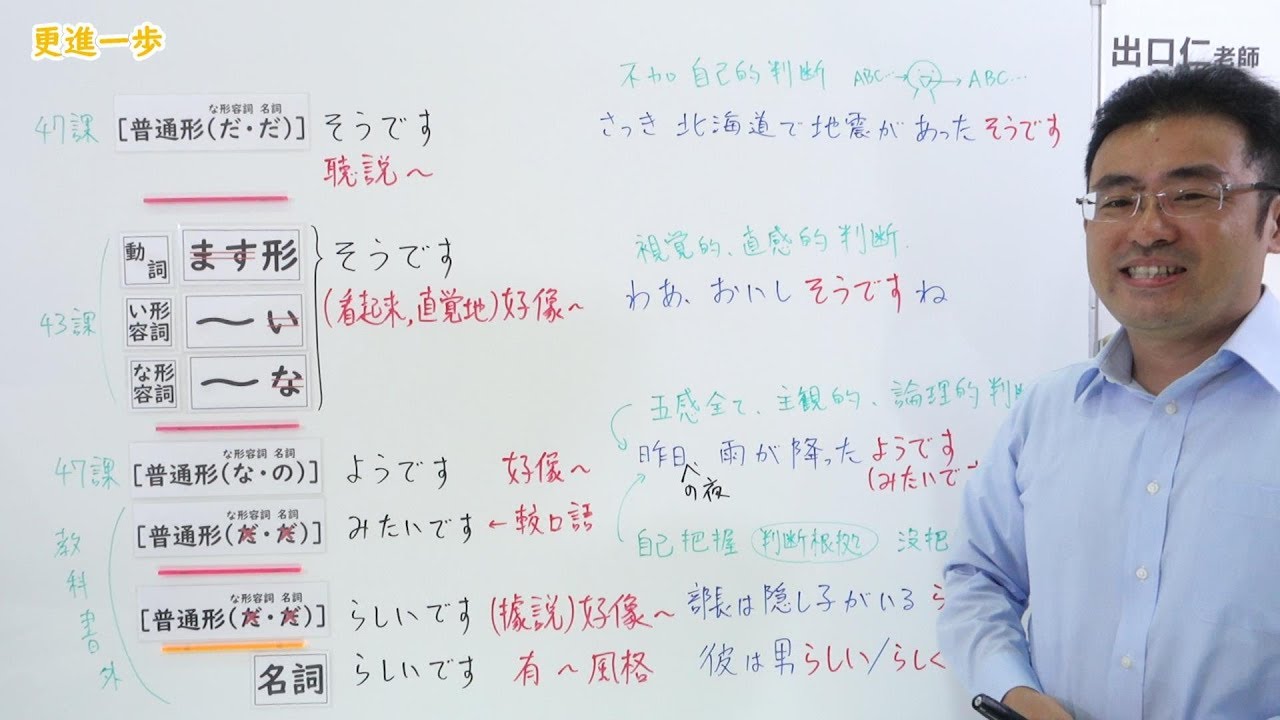 更進一歩
出口仁老師
不加自己的判断 ABC…→ →ABC…
な形容詞 名詞
47課 [普通形(だ・だ)] そうです さっき北海道で地震があったそうです
聴説～
動詞 ます形 そうです 視覚的、直感的判断.
43課 い形容詞 ～い (看起来,直覚地)好像～ わあ、おいしそうですね
な形容詞 ～な
五感全て、主観的、論理的判
な形容詞 名詞
47課 [普通形(な・の)] ようです 好像～ 昨日、雨が降ったようです
の夜 (みたいで
な形容詞 名詞
教科書外 [普通形(だ・だ)] みたいです ←較口語
自己把握 判断根拠 沒把
な形容詞 名詞
[普通形(だ・だ)] らしいです (據説)好像～ 部長は隠し子がいるら
名詞 らしいです 有～風格 彼は男らしい/らしく